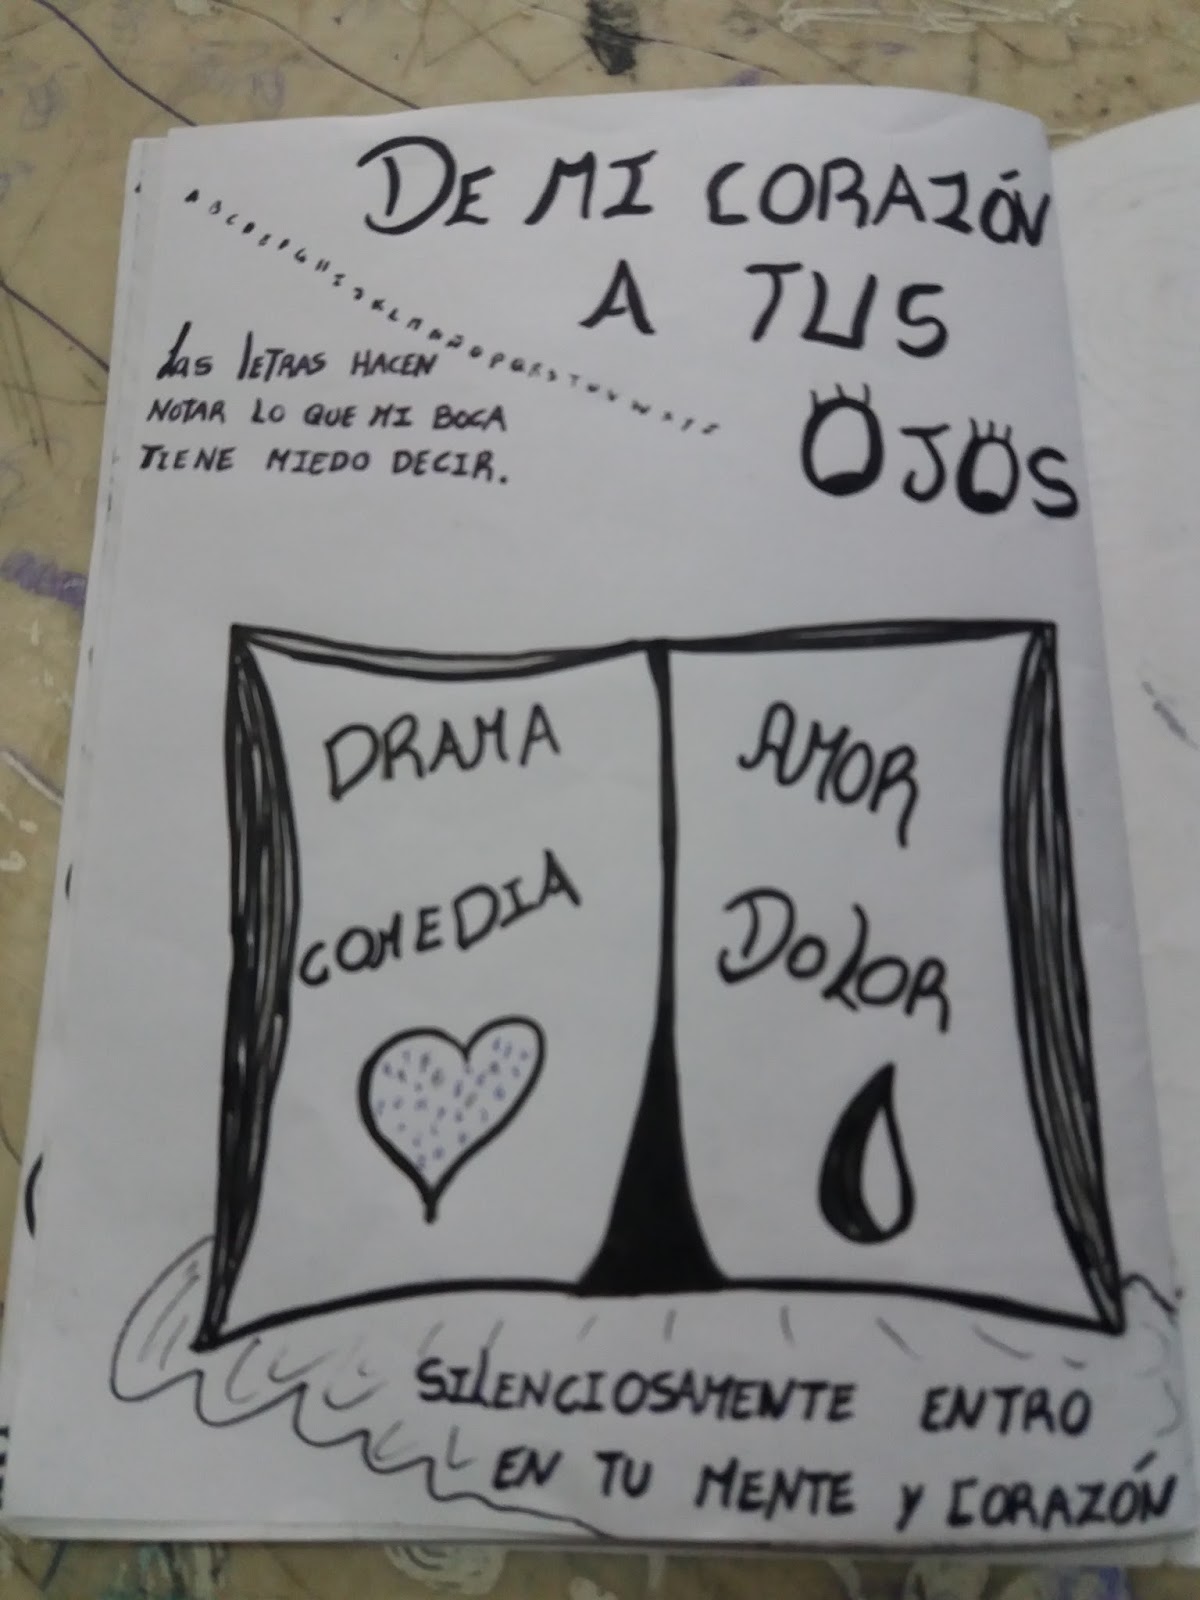 DE MI CORAZÓN
A TUS
OJOS
Las LETRAS HACEN
NOTAR LO QUE MI BOCA
TIENE MIEDO DECIR.
DRAMA
COMEDIA
AMOR
DOLOR
SILENCIOSAMENTE ENTRO
EN TU MENTE Y CORAZÓN